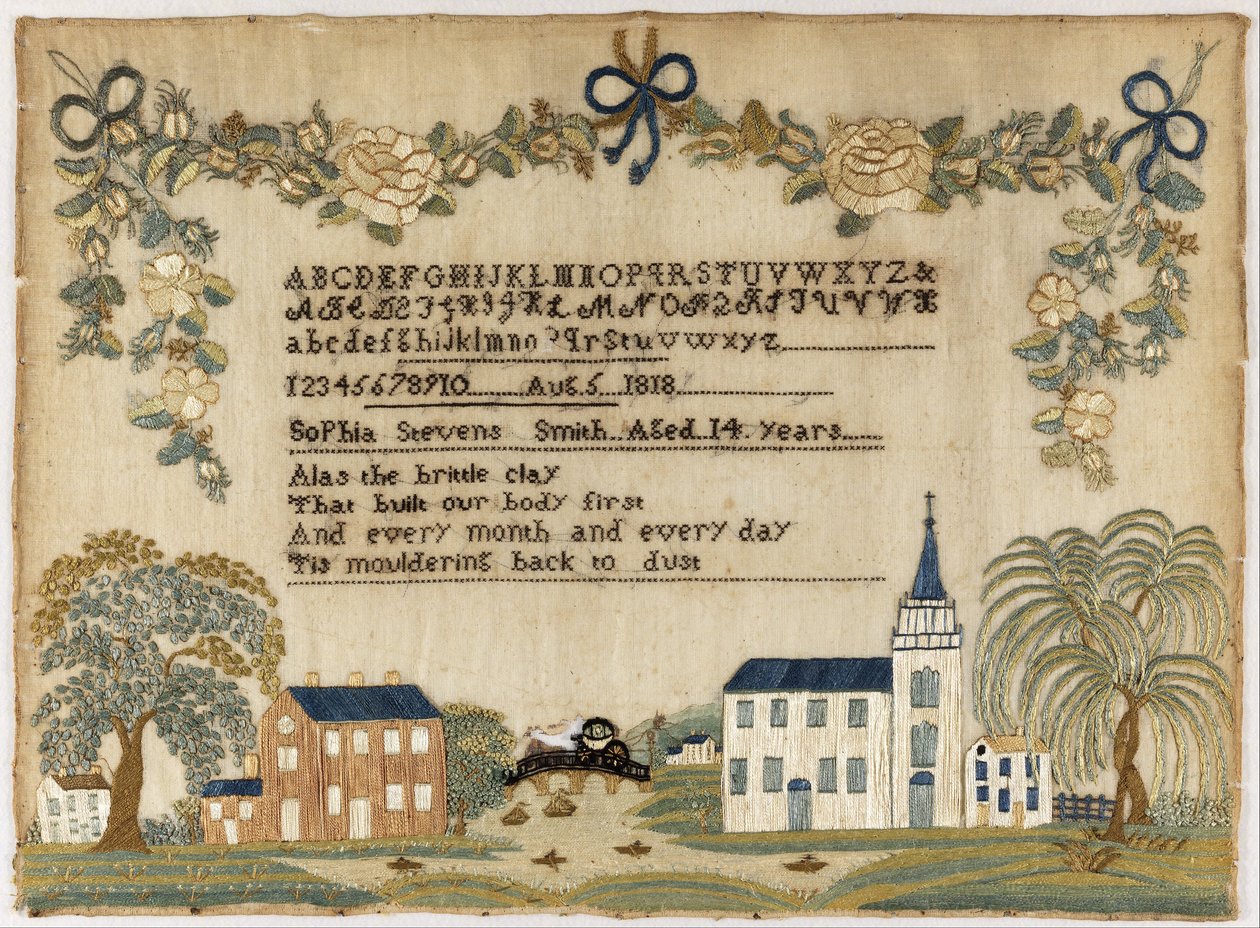 ABCDEFGHIJKLMNOPQRSTUVWXYZ&
ABCDEFGHIJKLMNOPQRSTUVWX
abcdefghijklmnopqrstuvwxyz
12345678910 Aug. 5 1818
SoPhia Stevens Smith Aged 14 years
Alas the brittle clay
That built our body first
And every month and every day
Tis mouldering back to dust